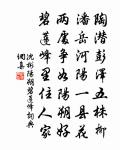 陶潜彭泽五株柳
潘岳河阳一县花
两处争如阳朔好
碧莲峰里住人家
沈彬阳朔碧莲峰词典
网集